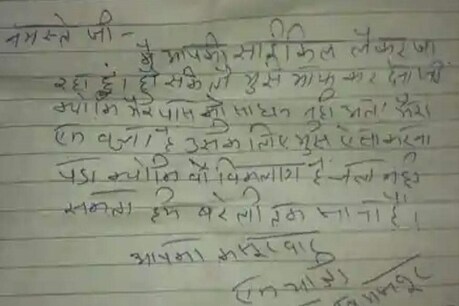 नमस्ते जी -
मै आपकी साईकिल लेकर जा
रहा हूं। हो सके तो मुझे माफ कर देना जी
क्योकि मेरे पास कोई साधन नही मेरा
एक बच्चा है उसके लिए मुझे ऐसा करना
पडा क्योकि वो विकलांग है चल नही
सकता हमे बरेली तक जाना है।
आपका कसूरवार
एक यात्री
मजदूर